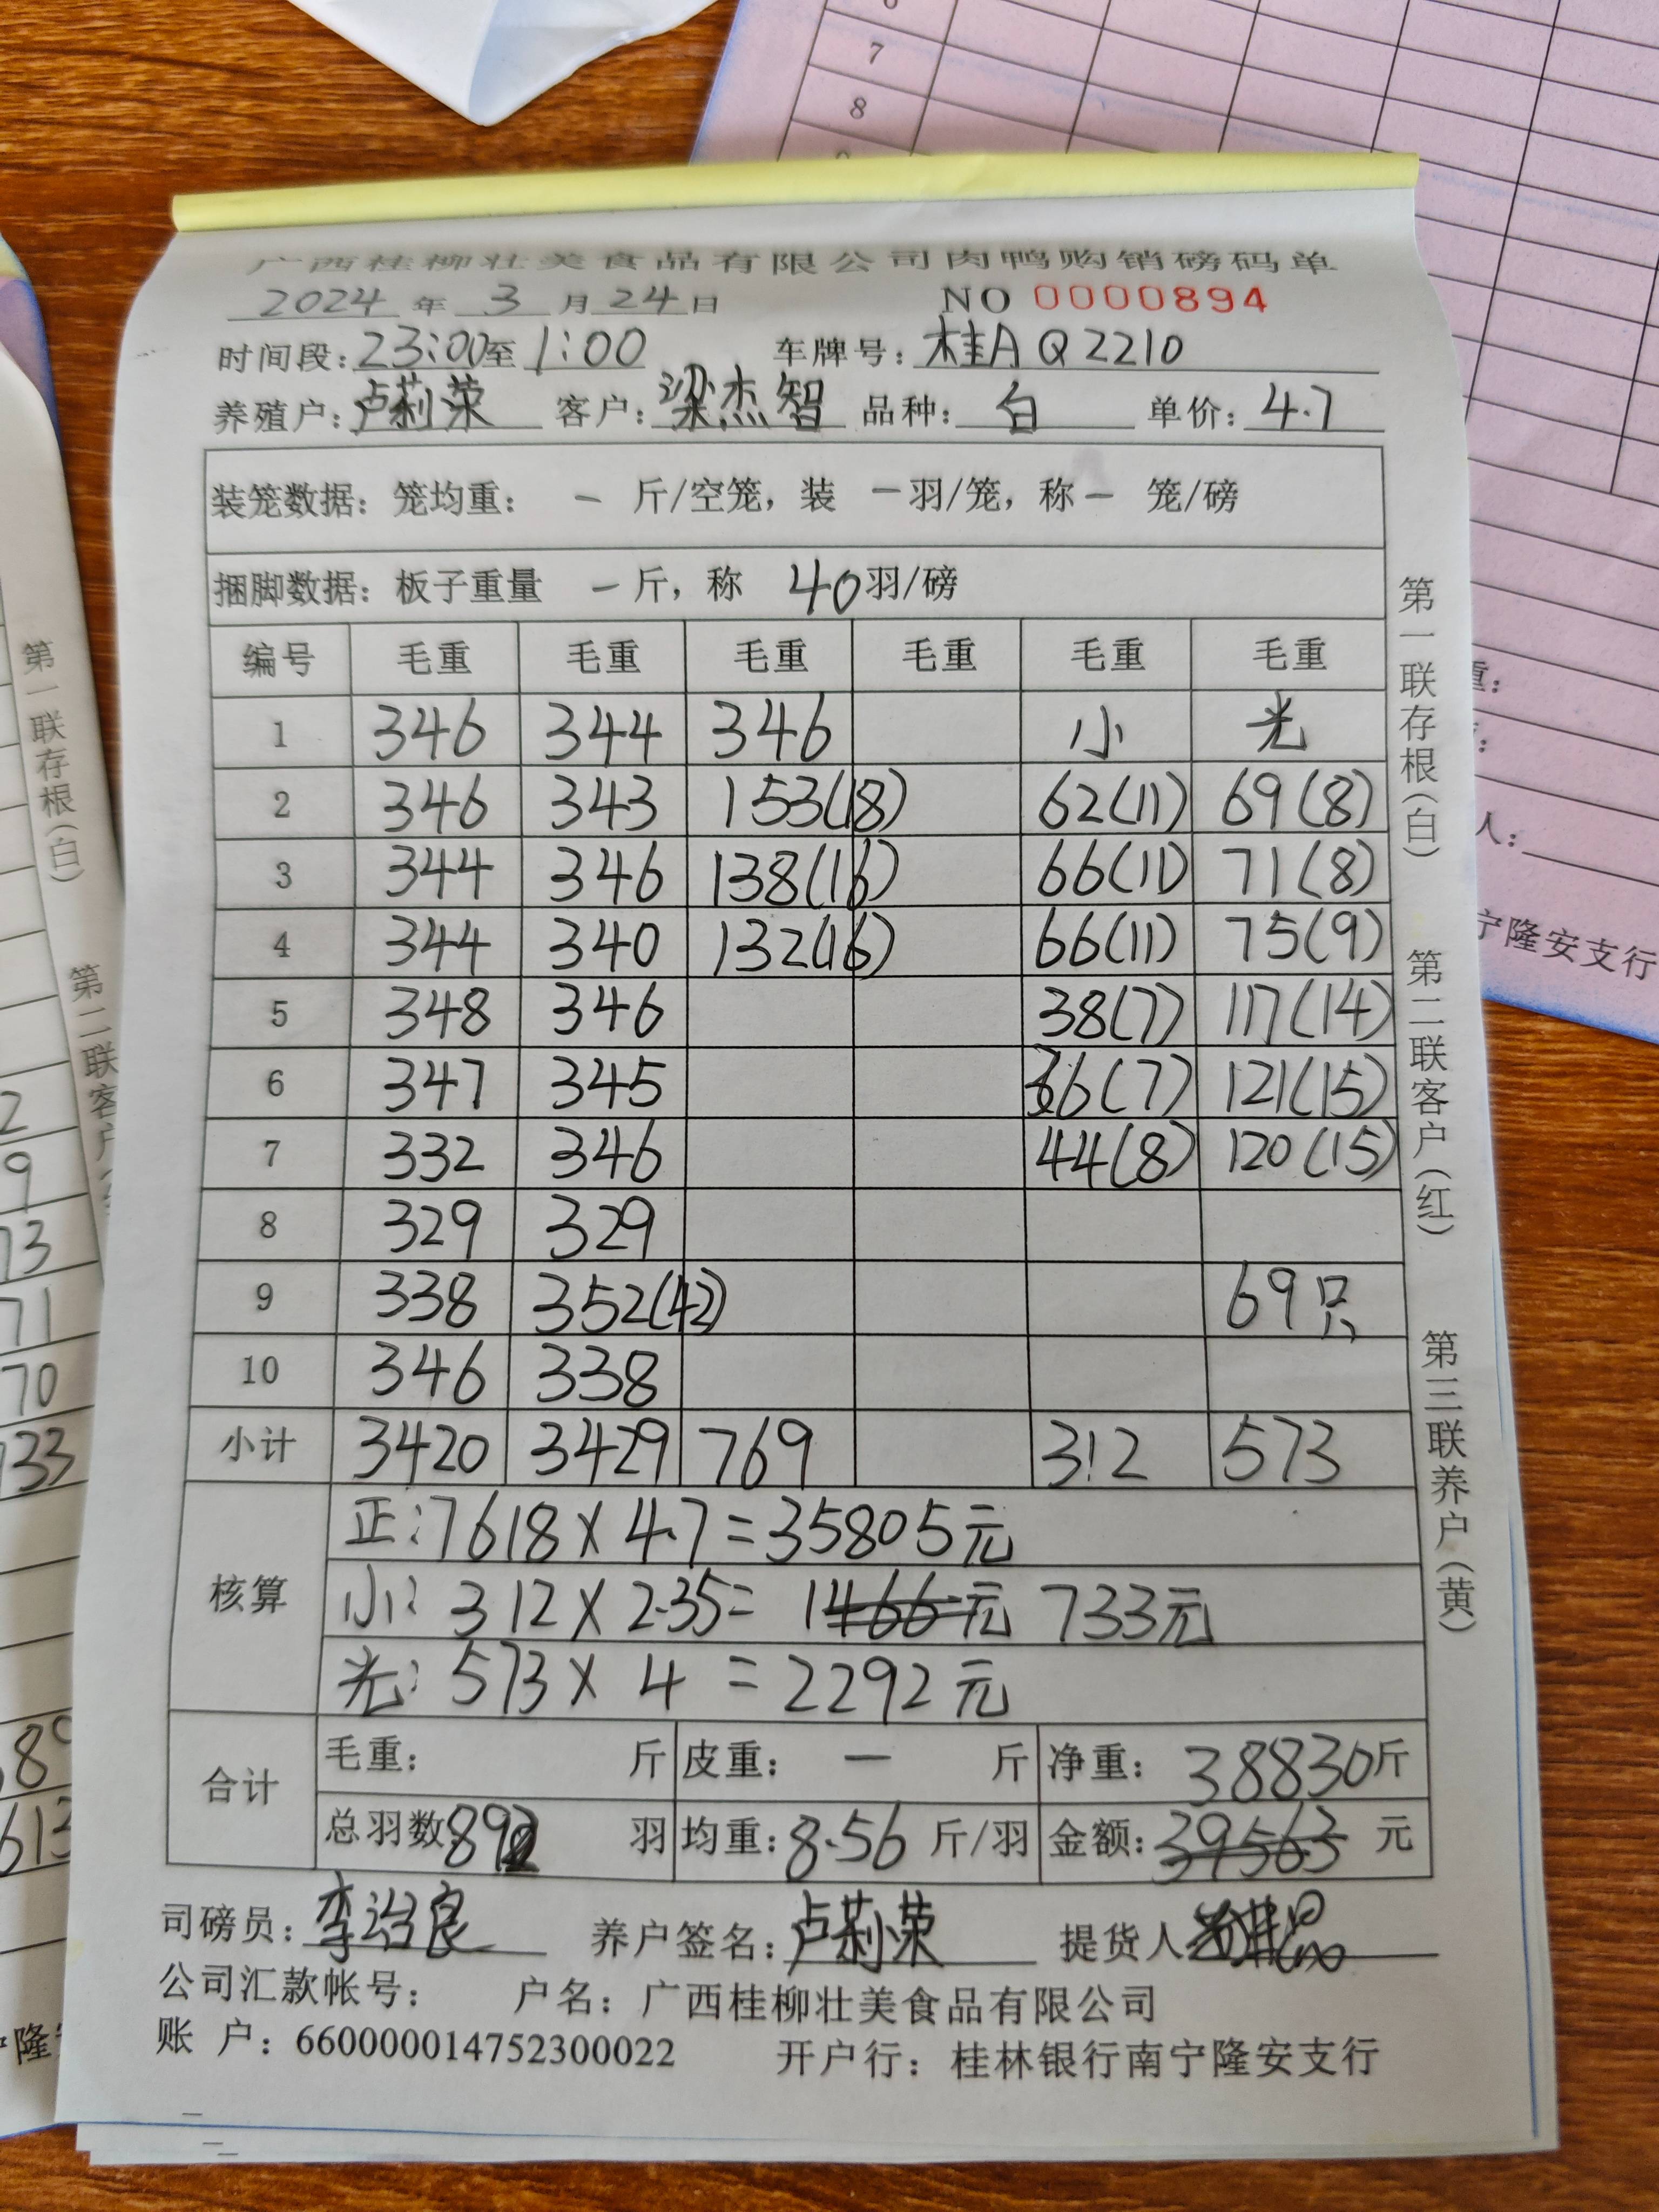 广西桂柳壮美食品有限公司肉鸭购销磅码单
2024 年 3 月 24 日 NO 0000894
时间段：23:00至 1:00 车牌号：桂A Q2210
养殖户：卢莉荣 客户：梁杰智 品种：白 单价：4.7
装笼数据：笼均重： — 斤/空笼，装 — 羽/笼，称 — 笼/磅
捆脚数据：板子重量 — 斤，称 40 羽/磅
编号 毛重 毛重 毛重 毛重 毛重 毛重
1 346 344 346 小 光
2 346 343 153(18) 62(11) 69(8)
3 344 346 138(16) 66(11) 71(8)
4 344 340 132(16) 66(11) 75(9)
5 348 346 38(7) 117(14)
6 347 345 36(7) 121(15)
7 332 346 44(8) 120(15)
8 329 329
9 338 352(42) 69只
10 346 338
小计 3420 3429 769 312 573
核算
正：7618×4.7=35805元
小：312×2.35= 1466元 733元
光：573×4 =2292元
合计
毛重： 斤 皮重： — 斤 净重：38830斤
总羽数892 羽 均重：8.56 斤/羽 金额：39563 元
司磅员：李治良 养户签名：卢莉荣 提货人
公司汇款帐号： 户名：广西桂柳壮美食品有限公司
账 户：660000014752300022 开户行：桂林银行南宁隆安支行
第一联存根（白） 第二联客户（红） 第三联养户（黄）
第一联存根（白）
第二联客户
2
9
13
71
70
733
613
隆安
6
7
8
9
重：
人：
宁隆安支行